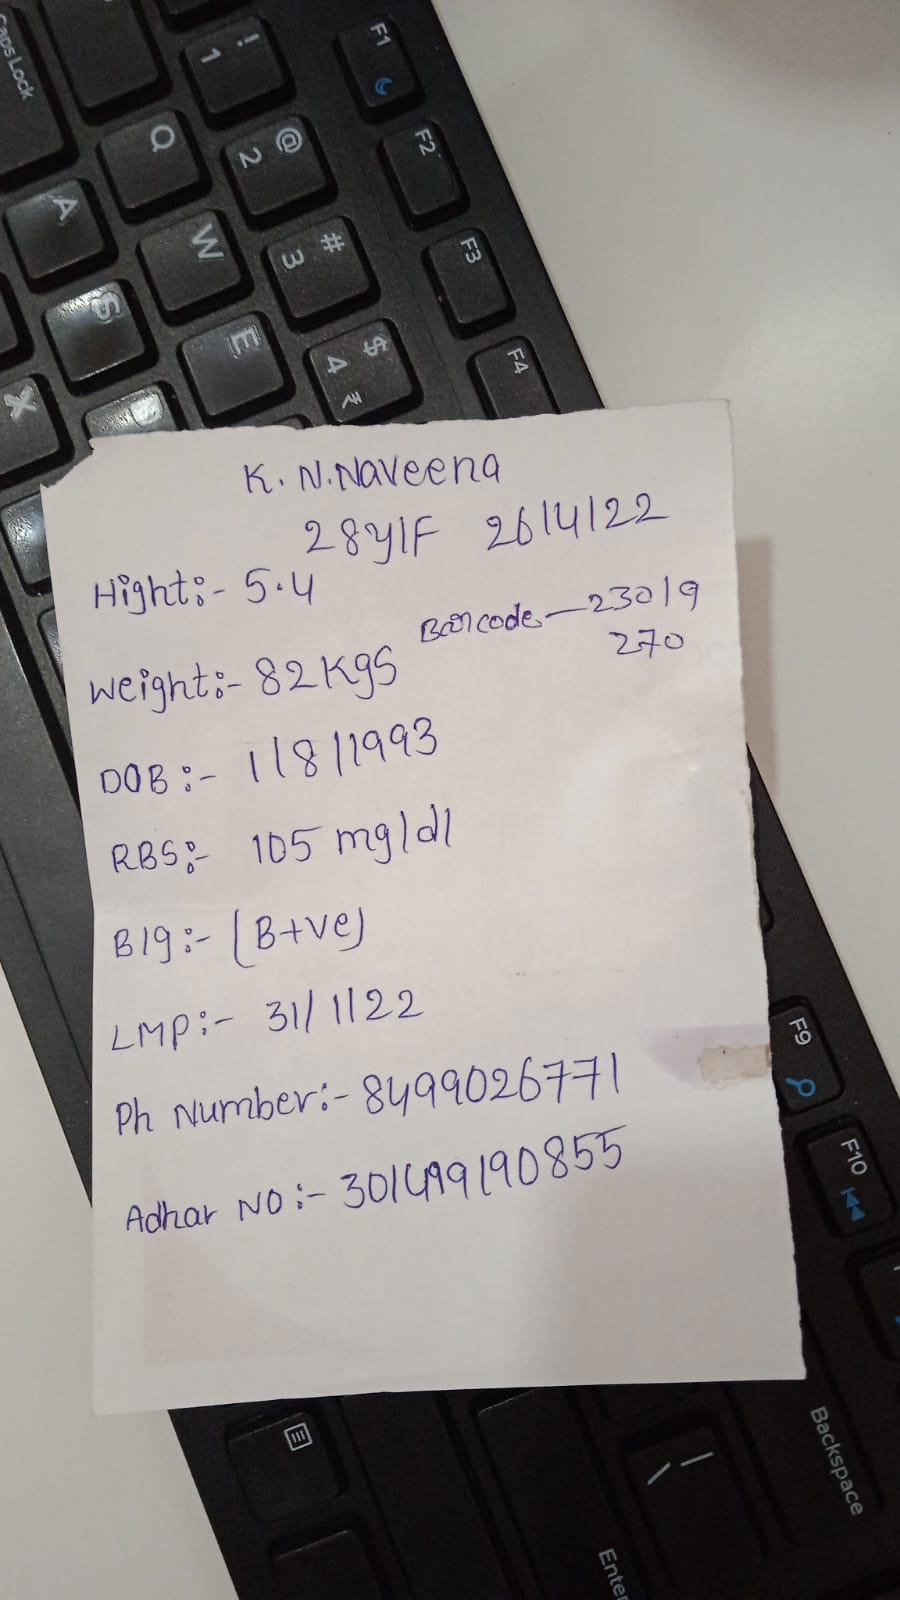 Caps Lock
! 1
F1
Q
@ 2
F2
A
W
# 3
F3
S
E
$ 4 ₹
F4
X
D
K. N. Naveena
28Y/F 26/4/22
Hight:- 5.4
Barcode - 23019
270
Weight:- 82 Kgs
DOB:- 1/8/1993
RBS:- 105 mg/dl
B/g:- (B+ve)
LMP:- 31/1/22
Ph Number:- 8499026771
Adhar NO:- 301499190855
F9
F10
Backspace
Enter